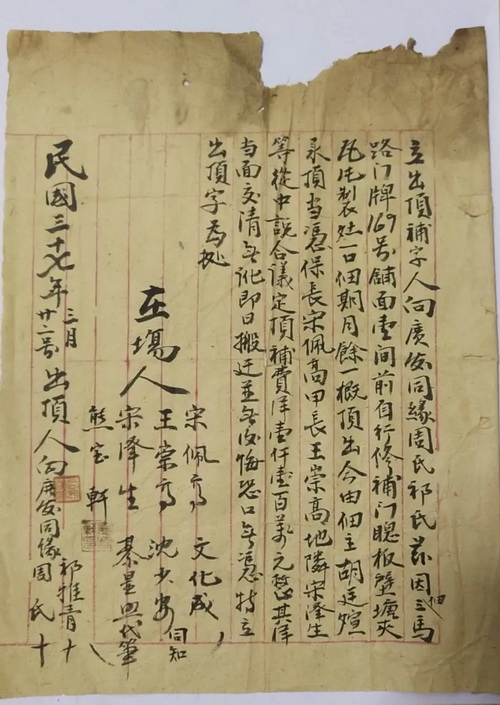 立出頂補字人向廣發同緣周氏祁氏茲因佃三馬
路门牌169号舖面壹间前自行修補门聰板壁塘夾
瓦製灶一口佃期月餘一概頂出今由佃主胡廷煊
承頂当憑保長宋佩高甲長王崇高地隣宋澤生
等從中説合議定頂補費洋壹仟壹百萬元整其洋
当面交清無訛即日搬迁並無反悔恐口無憑特立
出頂字為拠
在場人
宋佩高 文化成
王崇高 沈少安 同知
宋澤生 秦量與代筆
熊宝軒
民國三十七年三月廿二号 出頂人向廣發同緣周氏十
祁推青十